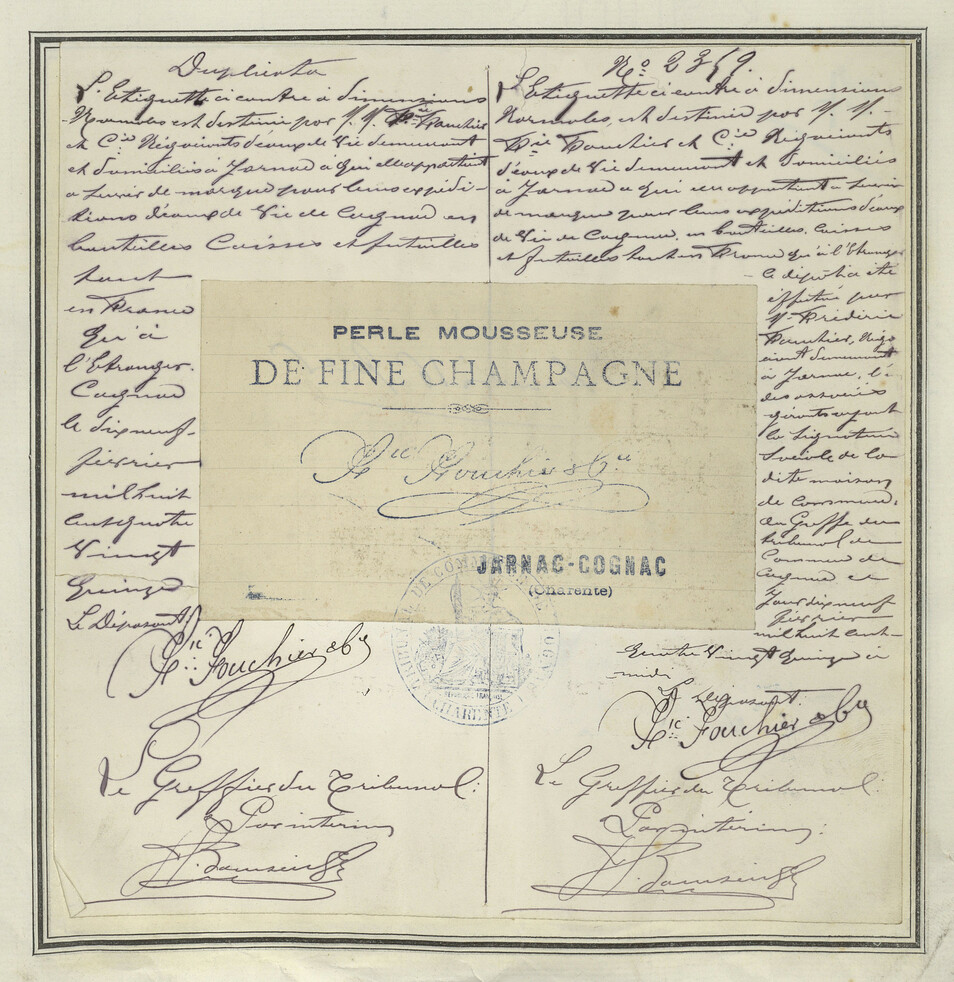 Duplicata
L'Etiquette ci contre à dimensions
Normales est destinée par M. M. Fic Fouchier
et Cie Négociants d'eaux de Vie demeurant
et domiciliés à Jarnac à qui elle appartient
a servir de marque pour leurs expédi-
tions d'eaux de Vie de Cognac en
bouteilles Caisses et futailles
tant
en France
qu'à
l'Etranger.
Cognac
le dix neuf
février
mil huit
cent quatre
Vingt
Quinze
Le Déposant
Fic Fouchier & Cie
Le Greffier du Tribunal:
Par interim
No 2359.
L'Etiquette ci contre à dimensions
Normales, est destinée par M. M.
Fic Fouchier et Cie Négociants
d'eaux de Vie demeurant et domiciliés
à Jarnac a qui elle appartient a servir
de marque pour leurs expéditions d'eaux
de Vie de Cognac, en bouteilles, caisses
et futailles tant en France qu'à l'Etranger
le dépot a été
effectué par
M. Frédéric
Fouchier, Négo
ciant demeurant
à Jarnac, l'un
des associés
gérants ayant
la signature
Sociale de la
dite maison
de commerce,
au Greffe du
tribunal de
Commerce de
Cognac le
Jour dix neuf
février
mil huit cent
quatre Vingt Quinze à
midi
Le Déposant.
Fic Fouchier & Cie
Le Greffier du Tribunal:
Par intérim:
PERLE MOUSSEUSE
DE FINE CHAMPAGNE
Fic Fouchier & Cie
JARNAC-COGNAC
(Charente)
TRIBUNAL DE COMMERCE COGNAC
CHARENTE